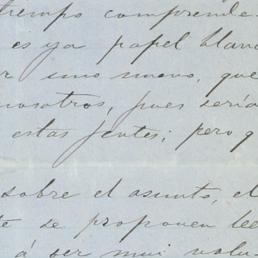 tiempo comprende
es ya papel blan
sino nuevo, que
nosotros, pues sería
estas jentes; pero q
sobre el asunto, el
te se proponen lee
á ser mui volu